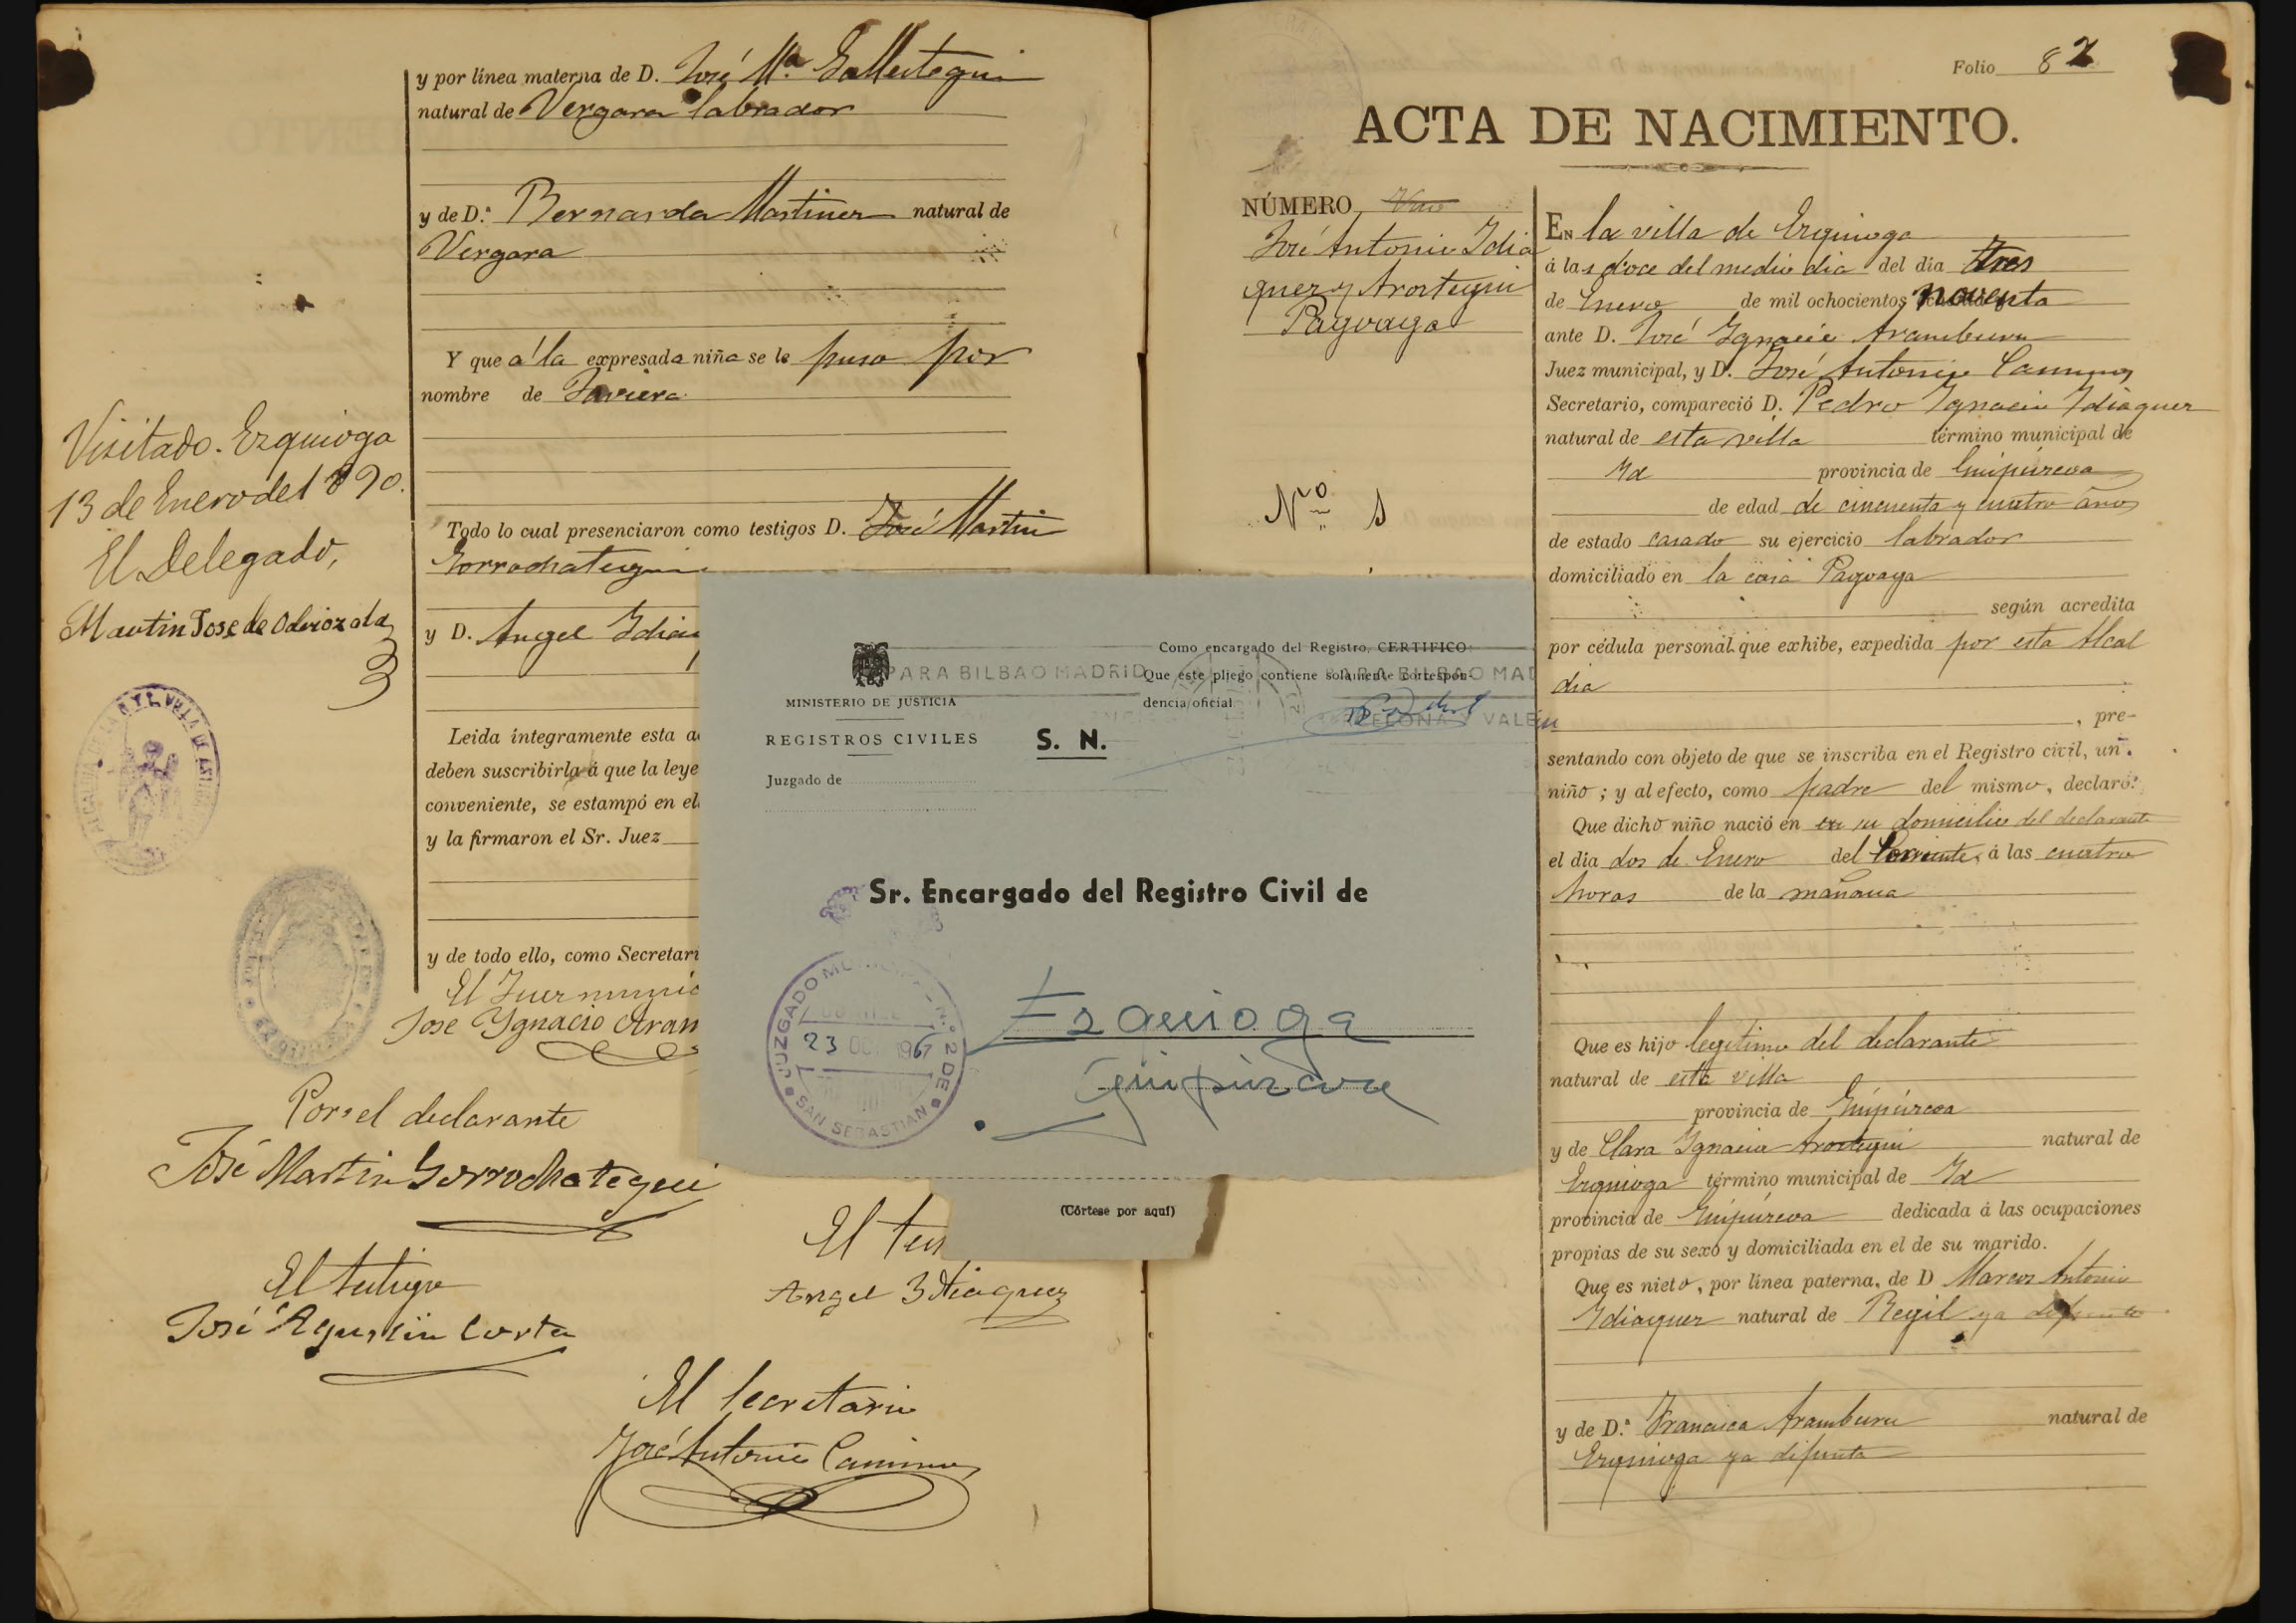 y por línea materna de D. José Mª Gallastegui
natural de Vergara labrador
y de D.ª Bernarda Martinez natural de
Vergara
Y que a' la expresada niña se le puso por
nombre de Javiera
Visitado. Ezquioga
13 de Enero del 890.
El Delegado,
Martin Jose de Odriozola
Todo lo cual presenciaron como testigos D. José Martin
Gorrochategui
y D. Angel Idia
Leida íntegramente esta a
deben suscribirla á que la leye
conveniente, se estampó en el
y la firmaron el Sr. Juez
y de todo ello, como Secretari
El Juez munic
Jose Ygnacio Aram
Por el declarante
José Martin Gorrochategui
El testigo
José Agustin Corta
El tes
Angel Idiaquez
El Secretario
José Antonio
MINISTERIO DE JUSTICIA
REGISTROS CIVILES
Juzgado de
S. N.
Como encargado del Registro, CERTIFICO:
Que este pliego contiene solamente correspon-
dencia oficial
PARA BILBAO MADRID
PARA BILBAO MAD
BARCELONA Y VALEN
Sr. Encargado del Registro Civil de
Ezquioga
Guipúzcoa
JUZGADO MUNICIPAL N.º 2 DE
23 OCT 1967
SAN SEBASTIAN
(Córtese por aquí)
Folio 82
ACTA DE NACIMIENTO.
NÚMERO
José Antonio Idia
quez y Arostegui
Pagoaga
Nº 1
En la villa de Ezquioga
á las doce del medio dia del dia tres
de Enero de mil ochocientos noventa
ante D. José Ygnacio Aramburu
Juez municipal, y D. José Antonio
Secretario, compareció D. Pedro Ygnacio Idiaquez
natural de esta villa término municipal de
Id provincia de Guipúzcoa
de edad de cincuenta y cuatro años
de estado casado su ejercicio labrador
domiciliado en la casa Pagoaga
según acredita
por cédula personal que exhibe, expedida por esta Alcal
dia
, pre-
sentando con objeto de que se inscriba en el Registro civil, un
niño; y al efecto, como padre del mismo, declaró:
Que dicho niño nació en en su domicilio del declarante
el dia dos de Enero del Corriente, á las cuatro
horas de la mañana
Que es hijo legitimo del declarante
natural de esta villa
provincia de Guipúzcoa
y de Clara Ygnacia Arostegui natural de
Ezquioga término municipal de Id
provincia de Guipúzcoa dedicada á las ocupaciones
propias de su sexo y domiciliada en el de su marido.
Que es nieto, por línea paterna, de D Marcos Antonio
Idiaquez natural de Regil ya difunto
y de D.ª Francisca Aramburu natural de
Ezquioga ya difunta